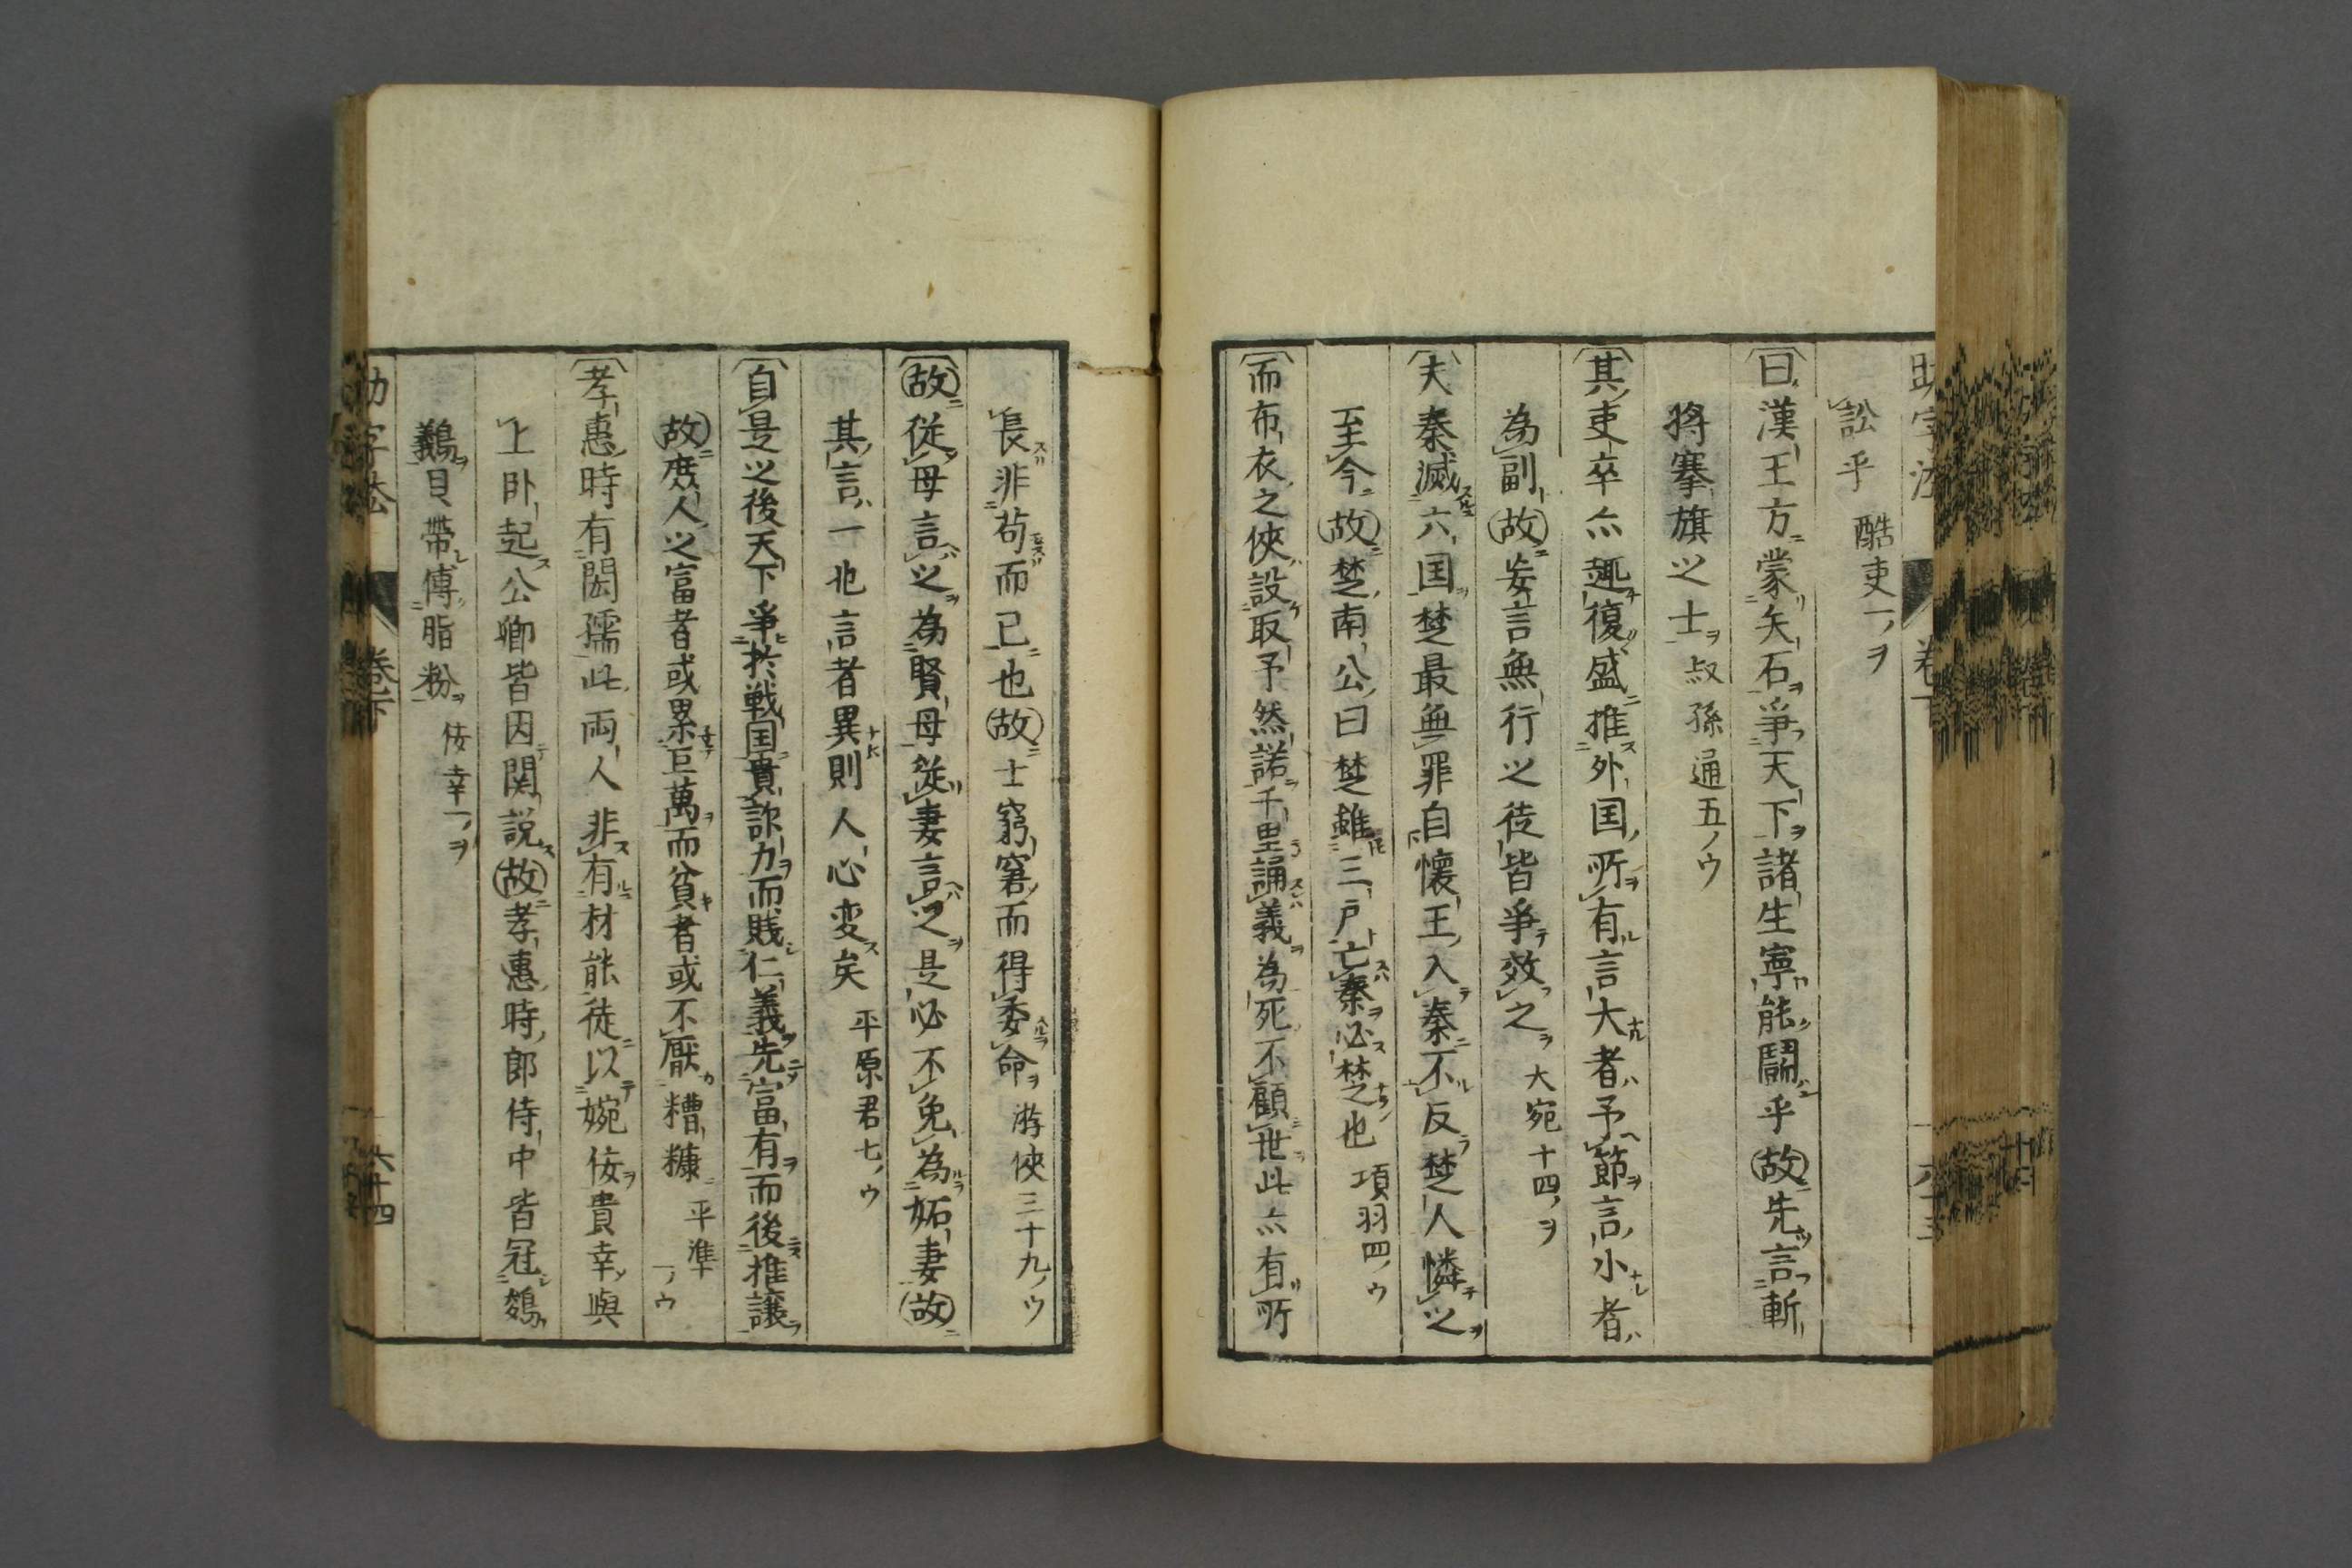 訟乎 酷吏一ノヲ
曰漢王方蒙矢石爭天下諸生寧能鬪乎故先言斬
將搴旗之士 叔孫通五ノウ
其吏卒亦輙復盛推外国所有言大者予節言小者
為副故妄言無行之徒皆爭效之 大宛十四ノヲ
夫秦滅六国楚最無罪自懷王入秦不反楚人憐之
至今故楚南公曰楚雖三戸亡秦必楚也 項羽四ノウ
而布衣之俠設取予然諾千里誦義為死不顧世此亦有所
長非苟而已也故士窮窘而得委命 游俠三十九ノウ
故從母言之為賢母從妻言之是必不免為妬妻故
其言一也言者異則人心変矣 平原君七ノウ
自是之後天下爭於戦国貴詐力而賎仁義先富有而後推讓
故庶人之富者或累巨萬而貧者或不厭糟糠 平準一ノウ
孝惠時有閎孺此両人非有材能徒以婉佞貴幸與
上卧起公卿皆因関説故孝惠時郎侍中皆冠鵕
鸃貝帶傅脂粉 佞幸一ノヲ
卷下
六十四